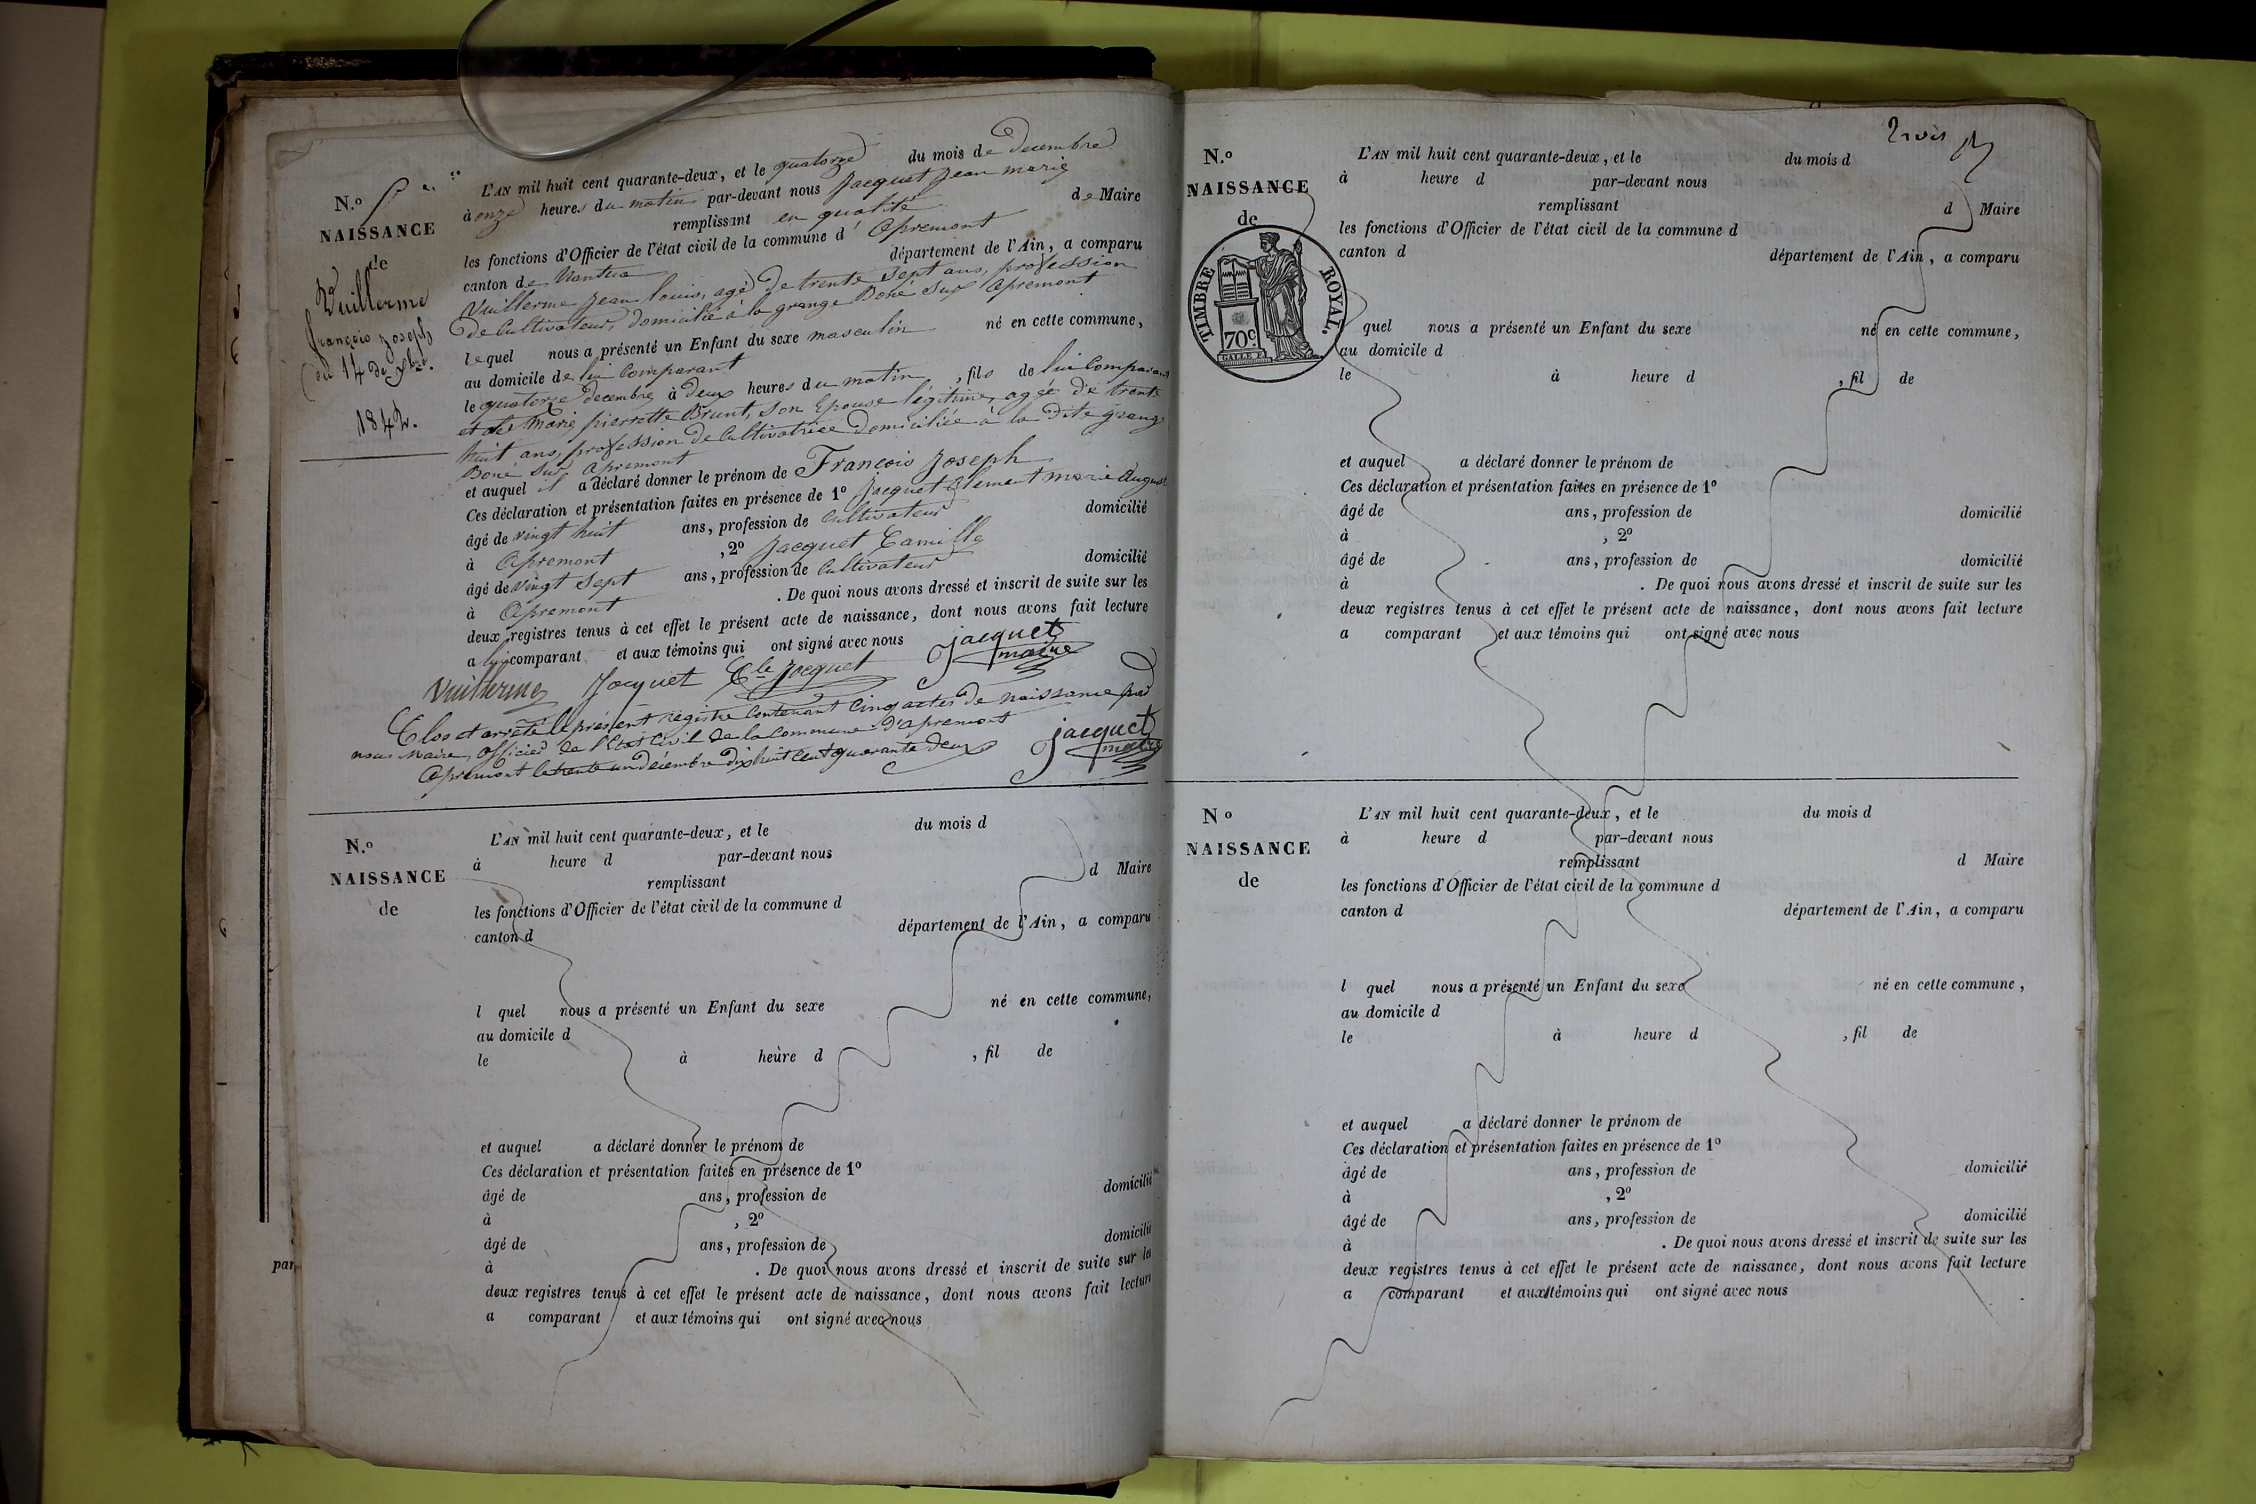 N.º 5
NAISSANCE
de
Vuillerme
françois Joseph
du 14 de Xbre.
1842.
L'AN mil huit cent quarante-deux, et le quatorze du mois de decembre
à onze heures du matin par-devant nous Jacquet Jean marie
remplissant en qualité de Maire
les fonctions d'Officier de l'état civil de la commune d' Apremont
canton de Nantua département de l'Ain, a comparu
Vuillerme Jean louis, agé de trente sept ans, profession
de Cultivateur, domicilié à la grange Boné sur Apremont
lequel nous a présenté un Enfant du sexe masculin né en cette commune,
au domicile de lui Comparant
le quatorze decembre à deux heures du matin, fils de lui Comparant
et de Marie pierrette Brunt, son Epouse légitime, agée de trente
huit ans, profession de Cultivatrice domiciliée à la dite grange
Boné sur Apremont
et auquel il a déclaré donner le prénom de François Joseph
Ces déclaration et présentation faites en présence de 1º Jacquet Clement marie August
âgé de vingt huit ans, profession de Cultivateur domicilié
à Apremont, 2º Jacquet Camille
âgé de vingt sept ans, profession de Cultivateur domicilié
à Apremont. De quoi nous avons dressé et inscrit de suite sur les
deux registres tenus à cet effet le présent acte de naissance, dont nous avons fait lecture
a lui comparant et aux témoins qui ont signé avec nous
jacquet
maire
Vuillerme Jacquet Cle Jacquet
Clos et arrêté le présent registre Contenant Cinq actes de naissance par
nous Maire, officier de l'Etat Civil de la Commune d'apremont
Apremont le trente un décembre dix huit cent quarante deux
jacquet
maire
N.º
NAISSANCE
de
L'AN mil huit cent quarante-deux, et le du mois d
à heure d par-devant nous
remplissant d Maire
les fonctions d'Officier de l'état civil de la commune d
canton d département de l'Ain, a comparu
l quel nous a présenté un Enfant du sexe né en cette commune,
au domicile d
le à heure d , fil de
et auquel a déclaré donner le prénom de
Ces déclaration et présentation faites en présence de 1º
âgé de ans, profession de domicilié
à , 2º
âgé de ans, profession de domicilié
à . De quoi nous avons dressé et inscrit de suite sur les
deux registres tenus à cet effet le présent acte de naissance, dont nous avons fait lecture
a comparant et aux témoins qui ont signé avec nous
par
trois
N.º
NAISSANCE
de
TIMBRE ROYAL.
70c.
L'AN mil huit cent quarante-deux, et le du mois d
à heure d par-devant nous
remplissant d Maire
les fonctions d'Officier de l'état civil de la commune d
canton d département de l'Ain, a comparu
quel nous a présenté un Enfant du sexe né en cette commune,
au domicile d
le à heure d , fil de
et auquel a déclaré donner le prénom de
Ces déclaration et présentation faites en présence de 1º
âgé de ans, profession de domicilié
à , 2º
âgé de ans, profession de domicilié
à . De quoi nous avons dressé et inscrit de suite sur les
deux registres tenus à cet effet le présent acte de naissance, dont nous avons fait lecture
a comparant et aux témoins qui ont signé avec nous
Nº
NAISSANCE
de
L'AN mil huit cent quarante-deux, et le du mois d
à heure d par-devant nous
remplissant d Maire
les fonctions d'Officier de l'état civil de la commune d
canton d département de l'Ain, a comparu
l quel nous a présenté un Enfant du sexe né en cette commune,
au domicile d
le à heure d , fil de
et auquel a déclaré donner le prénom de
Ces déclaration et présentation faites en présence de 1º
âgé de ans, profession de domicilié
à , 2º
âgé de ans, profession de domicilié
à . De quoi nous avons dressé et inscrit de suite sur les
deux registres tenus à cet effet le présent acte de naissance, dont nous avons fait lecture
a comparant et aux témoins qui ont signé avec nous